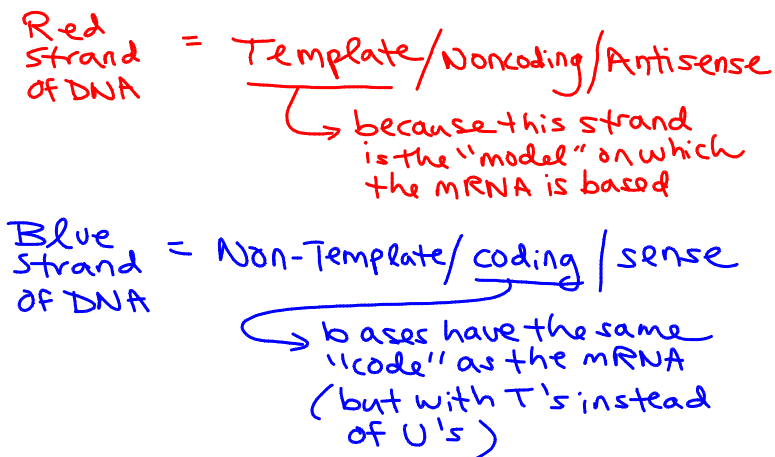 Red strand of DNA = Template/Noncoding/Antisense
because this strand
is the "model" on which
the mRNA is based
Blue strand of DNA = Non-Template/coding/sense
bases have the same
"code" as the mRNA
(but with T's instead
of U's)